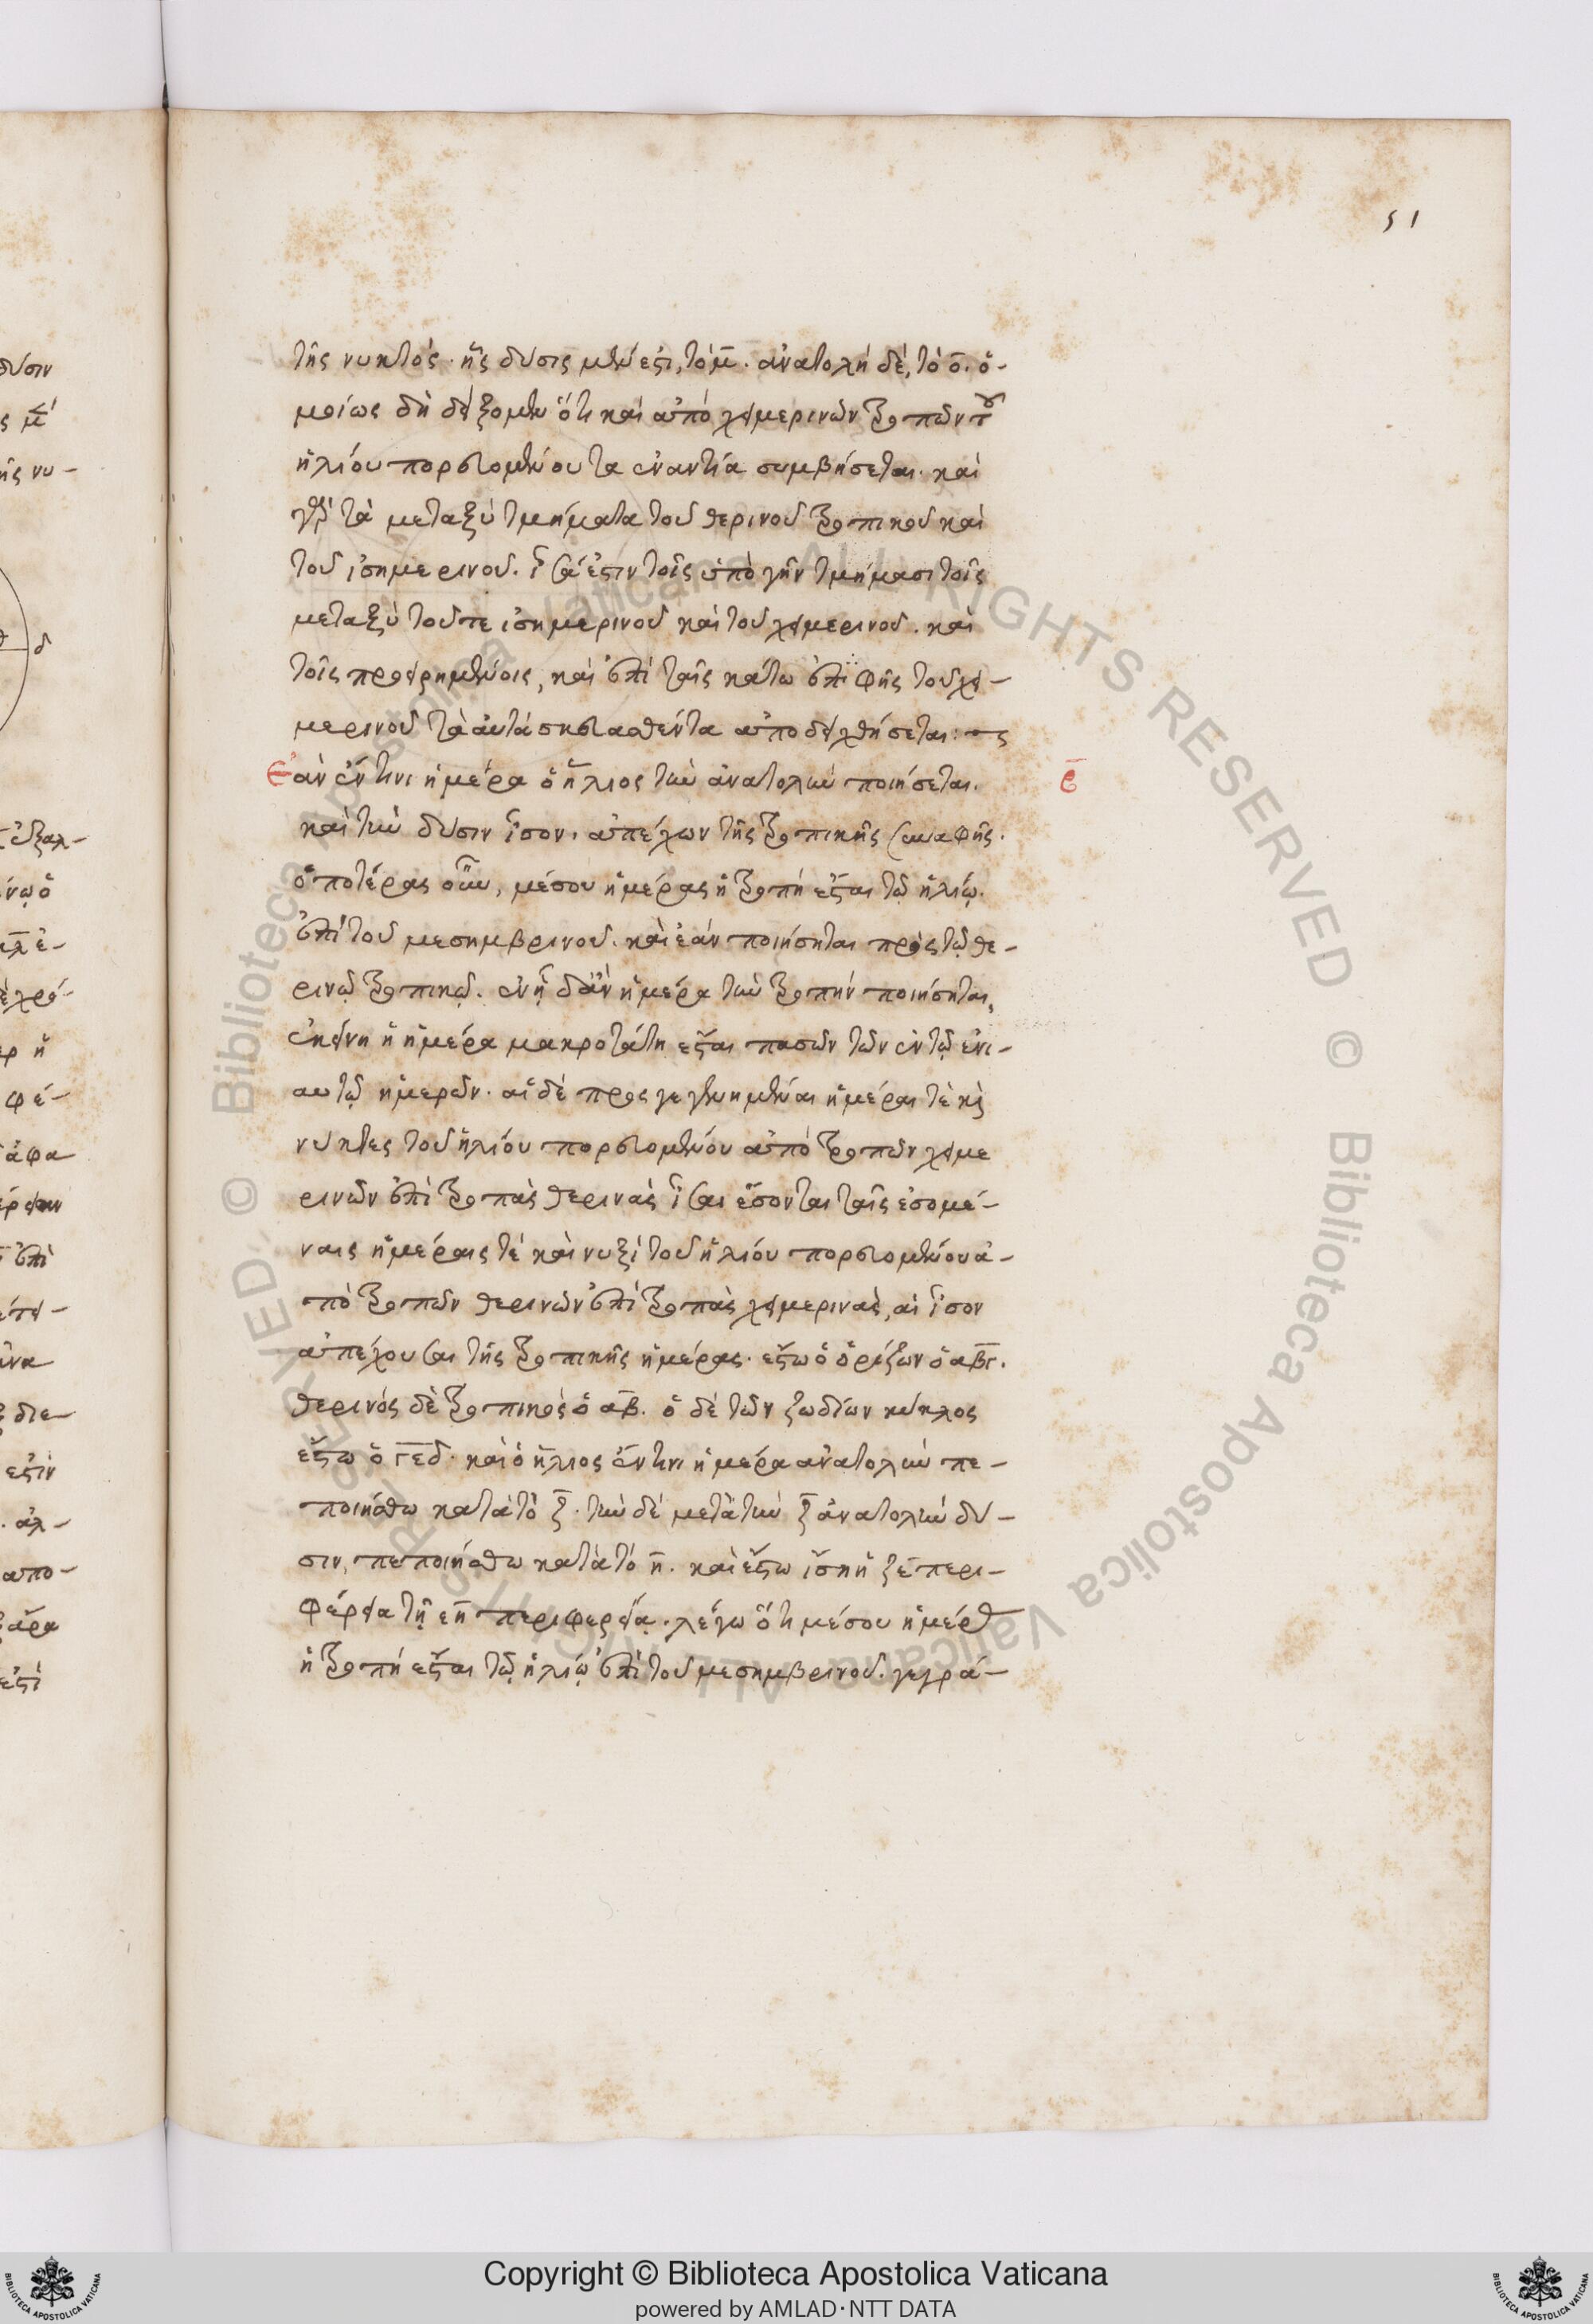 51
τῆς νυκτός. ἧς δύσις μέν ἐστι, τὸ μ̅. ἀνατολὴ δὲ, τὸ ο̅. ὁ-
μοίως δὴ δείξομεν ὅτι καὶ ἀπὸ χειμερινῶν τροπῶν τοῦ
ἡλίου πορευομένου τα ἐναντία συμβήσεται. καὶ
γὰρ τὰ μεταξὺ τμήματα τοῦ θερινοῦ τροπικοῦ καὶ
τοῦ ἰσημερινοῦ. ἴσά ἐστιν τοῖς ὑπὸ γῆν τμήμασι τοῖς
μεταξὺ τοῦ τε ἰσημερινοῦ καὶ τοῦ χειμερινοῦ. καὶ
τοῖς προειρημένοις, καὶ ἐπὶ ταῖς κάτω ἐπιφῆς τοῦ χει-
μερινοῦ τὰ αὐτὰ σκευασθέντα ἀποδειχθήσεται:
Ἐὰν ἔν τινι ἡμέρα ὁ ἥλιος τὴν ἀνατολὴν ποιήσεται. ε̅
καὶ τὴν δύσιν ἴσον. ἀπέχων τῆς τροπικῆς συναφῆς.
ὁποτέρας οὖν, μέσου ἡμέρας ἡ τροπὴ ἔσται τῷ ἡλίῳ.
ἐπὶ τοῦ μεσημβρινοῦ. καὶ ἐάν ποιήσηται πρὸς τῷ θε-
ρινῷ τροπικῷ. ἐν ᾗ δἂν ἡμέρα τὴν τροπήν ποιήσηται,
ἐκείνη ἡ ἡμέρα μακροτάτη ἔσται πασῶν τῶν ἐν τῷ ἐνι-
αυτῷ ἡμερῶν. αἱ δὲ προςγεγενημέναι ἡμέραι τὲ καὶ
νύκτες τοῦ ἡλίου πορευομένου ἀπὸ τροπῶν χειμε
ρινῶν ἐπὶ τροπὰς θερινὰς ἴσαι ἔσονται ταῖς ἐσομέ-
ναις ἡμέραις τέ καὶ νυξὶ τοῦ ἡλίου πορευομένου ἀ-
πὸ τροπῶν θερινῶν ἐπὶ τροπὰς χειμερινὰς, αἱ ἴσον
ἀπέχουσαι τῆς τροπικῆς ἡμέρας. ἔστω ὁ ὁρίζων ὁ α̅β̅γ̅.
θερινός δὲ τροπικὸς ὁ α̅β̅. ὁ δὲ τῶν ζωδίων κύκλος
ἔστω ὁ γ̅ε̅δ̅. καὶ ὁ ἥλιος ἔν τινι ἡμέρα ἀνατολὴν πε-
ποιήσθω κατὰ τὸ ζ̅. τὴν δὲ μετὰ τὴν ζ̅ ἀνατολὴν δύ-
σιν, πεποιήσθω κατὰ τὸ η̅. καὶ ἔστω ἴση ἡ ζ̅ε̅ περι-
φέρεια τῇ ε̅η̅ περιφερείᾳ. λέγω ὅτι μέσου ἡμέρας
ἡ τροπὴ ἔσται τῷ ἡλίῳ ἐπὶ τοῦ μεσημβρινοῦ. γεγρά-
Copyright © Biblioteca Apostolica Vaticana
powered by AMLAD·NTT DATA